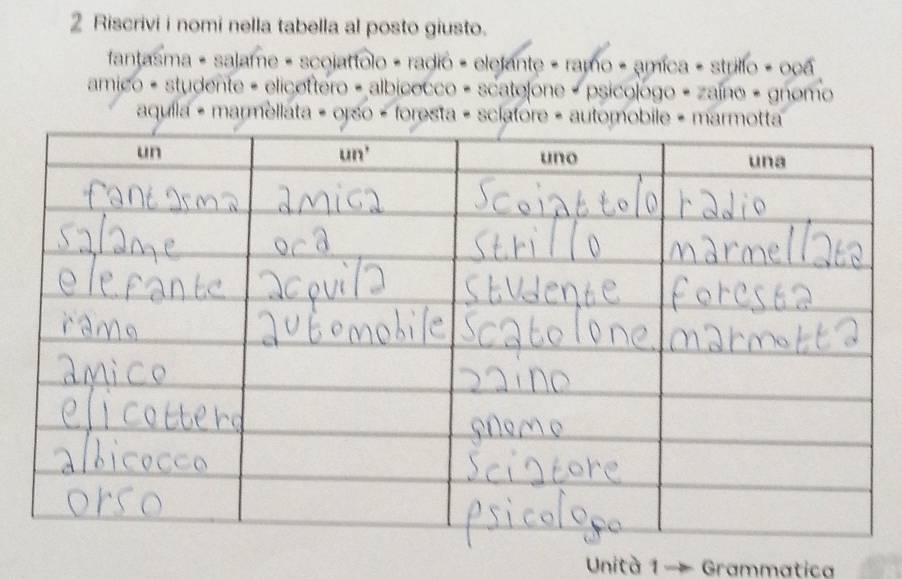 2 Riscrivi i nomi nella tabella al posto giusto.
fantasma • salame • scoiattolo • radio • elefante • ramo • amica • strillo • oca
amico • studente • elicottero • albicocco • scatolone • psicologo • zaino • gnomo
aquila • marmellata • orso • foresta • sciatore • automobile • marmotta
un un' uno una
fantasma amica scoiattolo radio
salame oca strillo marmellata
elefante acquila studente foresta
ramo automobile scatolone marmotta
amico zaino
elicottero gnomo
albicocco sciatore
orso psicologo
Unità 1 → Grammatica